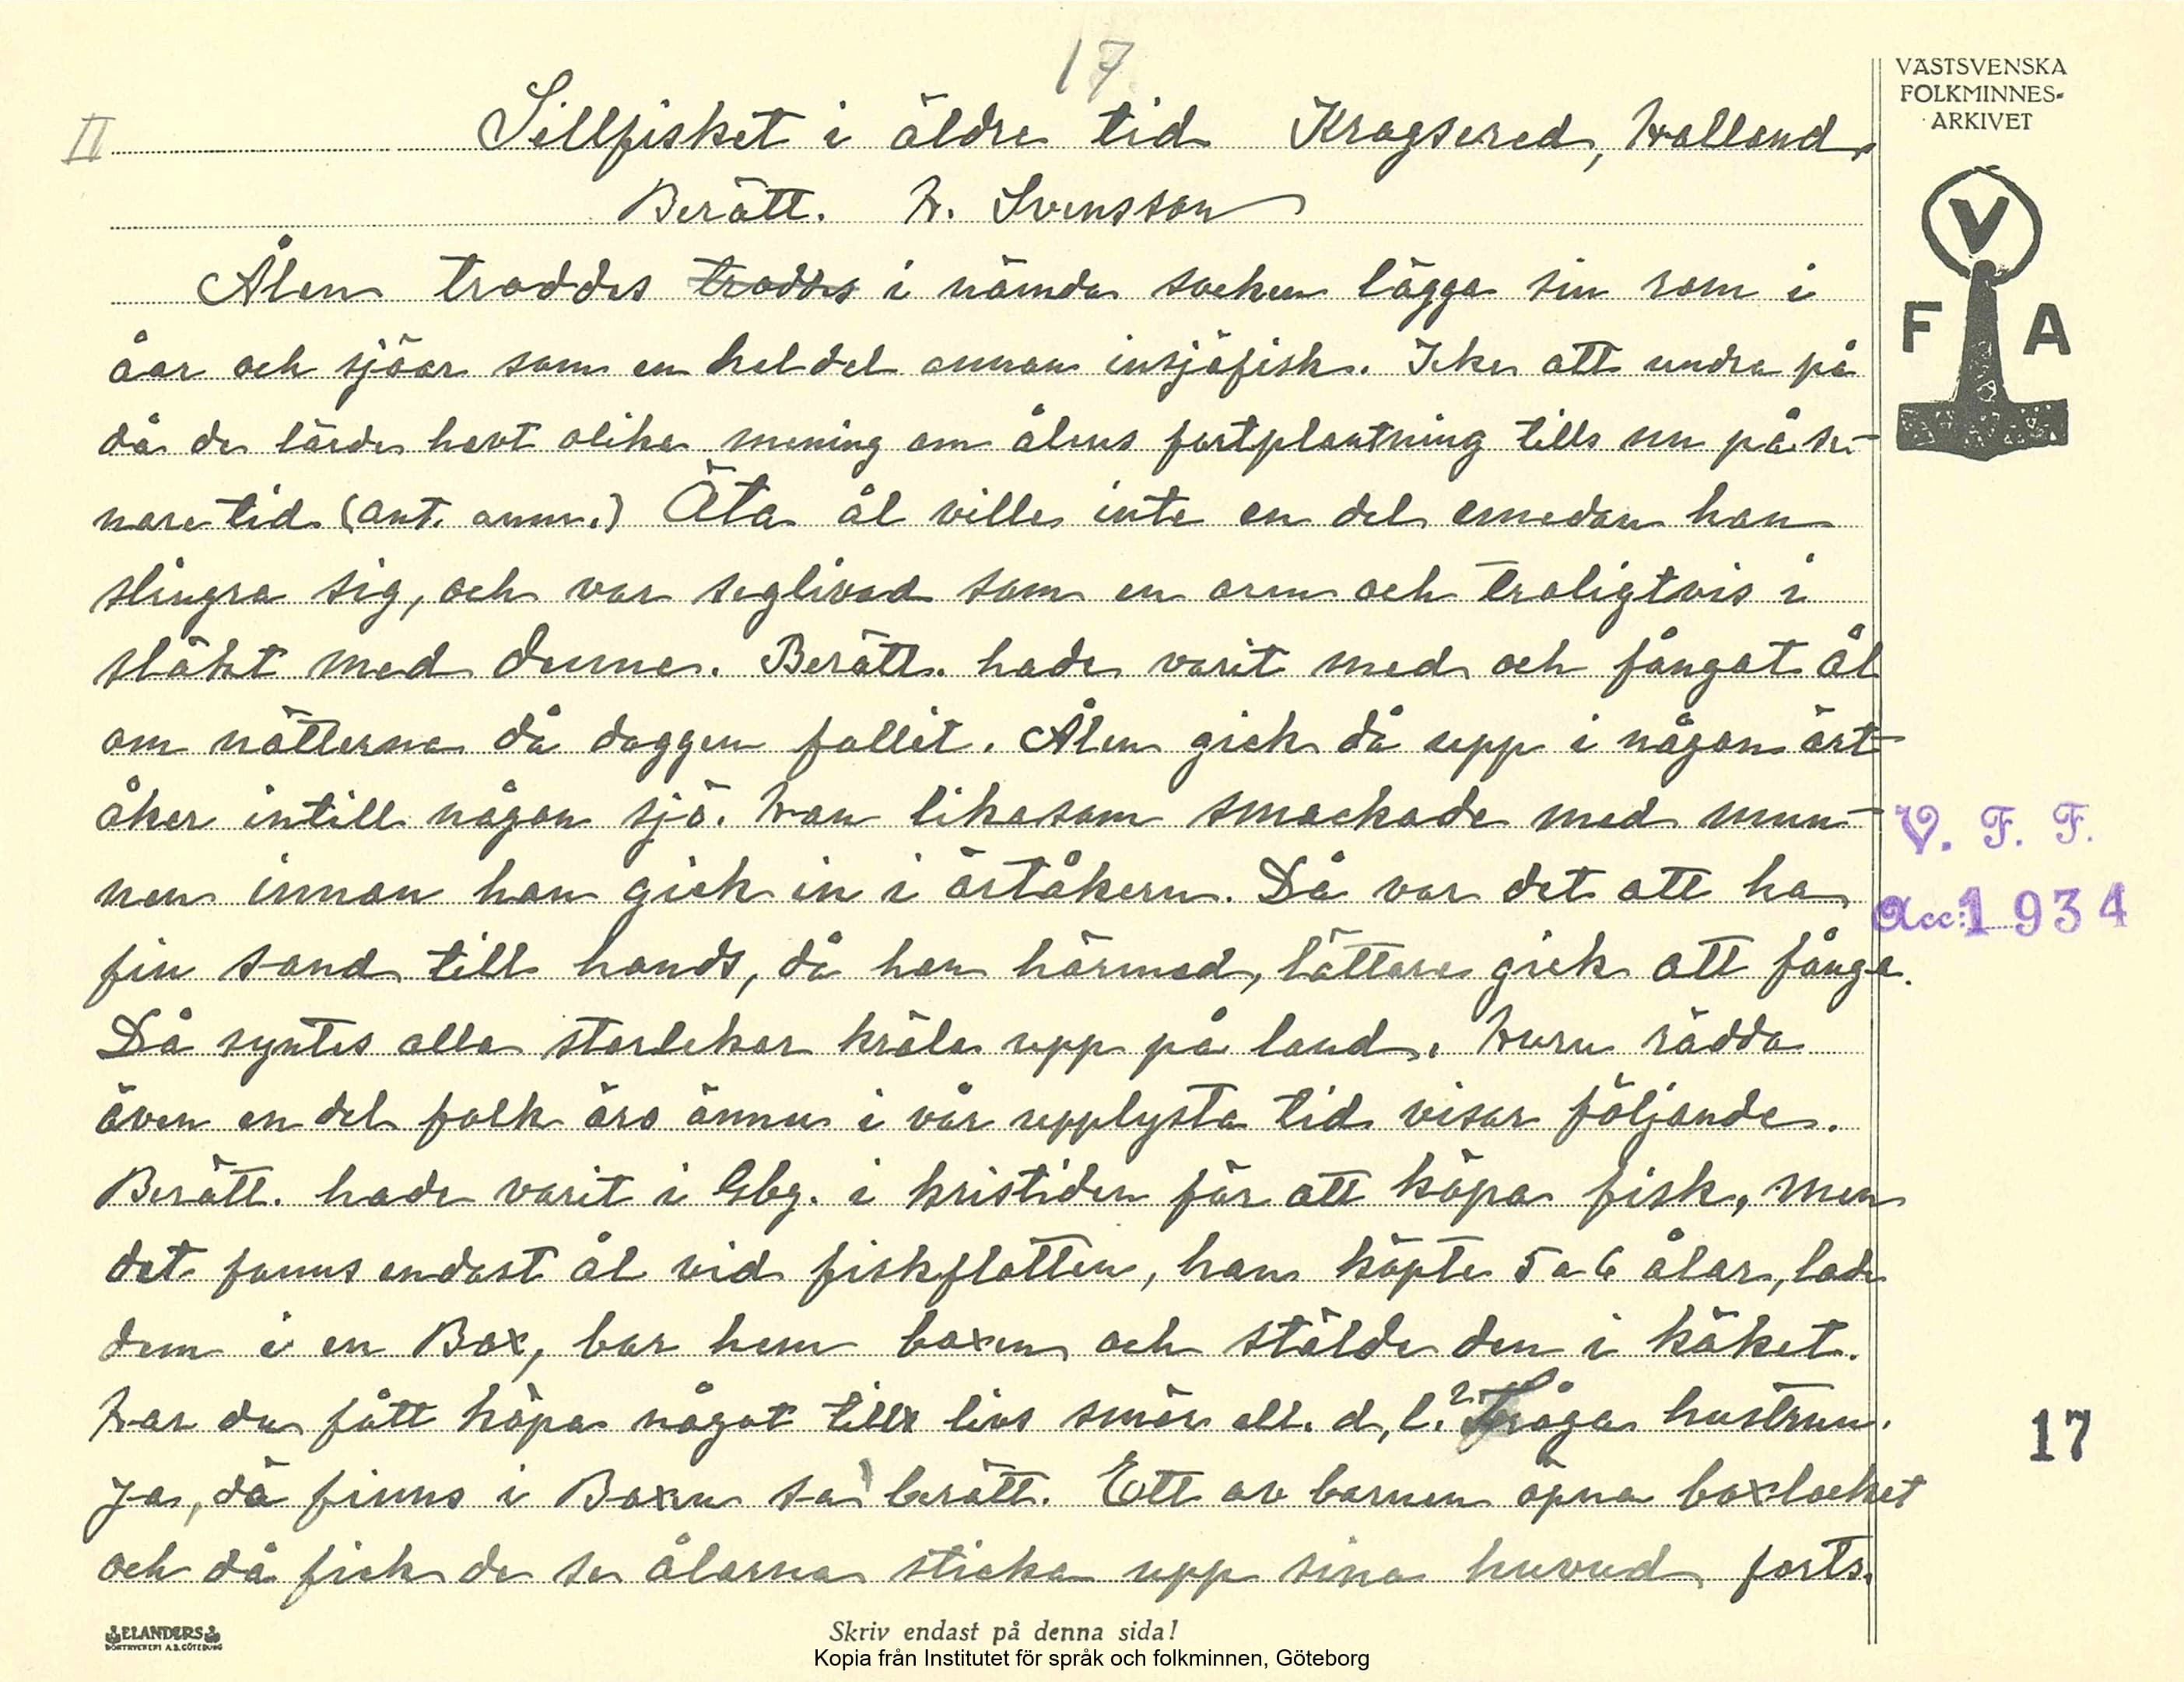 17
VÄSTSVENSKA
FOLKMINNES-
ARKIVET
II Sillfisket i äldre tid Kragsered, Halland.
Berätt. H. Svensson
V
F A
Ålen troddes troddes i nämda socken lägga sin rom i
åar och sjöar som en hel del annan insjöfisk. Icke att undra på
då de lärde havt olika mening om ålens fortplantning tills nu på se-
nare tid (ant. anm.) Äta ål ville inte en del emedan han
slingra sig, och var seglivad som en orm och troligtvis i
släkt med denne. Berätt. hade varit med och fångat ål
om nätterna då daggen fallit. Ålen gick då upp i någon ärt-
åker intill någon sjö. Han likasom smackade med mun-
nen innan han gick in i ärtåkern. Då var det att ha
fin sand till hands, då han härmed, lättare gick att fånga.
Då syntes alla storlekar kräla upp på land. Huru rädda
även en del folk äro ännu i vår upplysta tid visar följande.
Berätt. hade varit i Gbg. i kristiden för att köpa fisk, men
det fanns endast ål vid fiskflotten, han köpte 5 a 6 ålar, lade
dem i en Box, bar hem boxen och stälde den i köket.
Har du fått köpa något till livs smör ell. d, l.? Fråga hustrun.
Ja, dä finns i Boxen sa berätt. Ett av barnen öpna boxlocket
och då fick de se ålarna sticka upp sina huvud forts.
V. F. F.
Acc: 1934
17
ELANDERS
BOKTRYCKERI A.B. GÖTEBORG
Skriv endast på denna sida!
Kopia från Institutet för språk och folkminnen, Göteborg